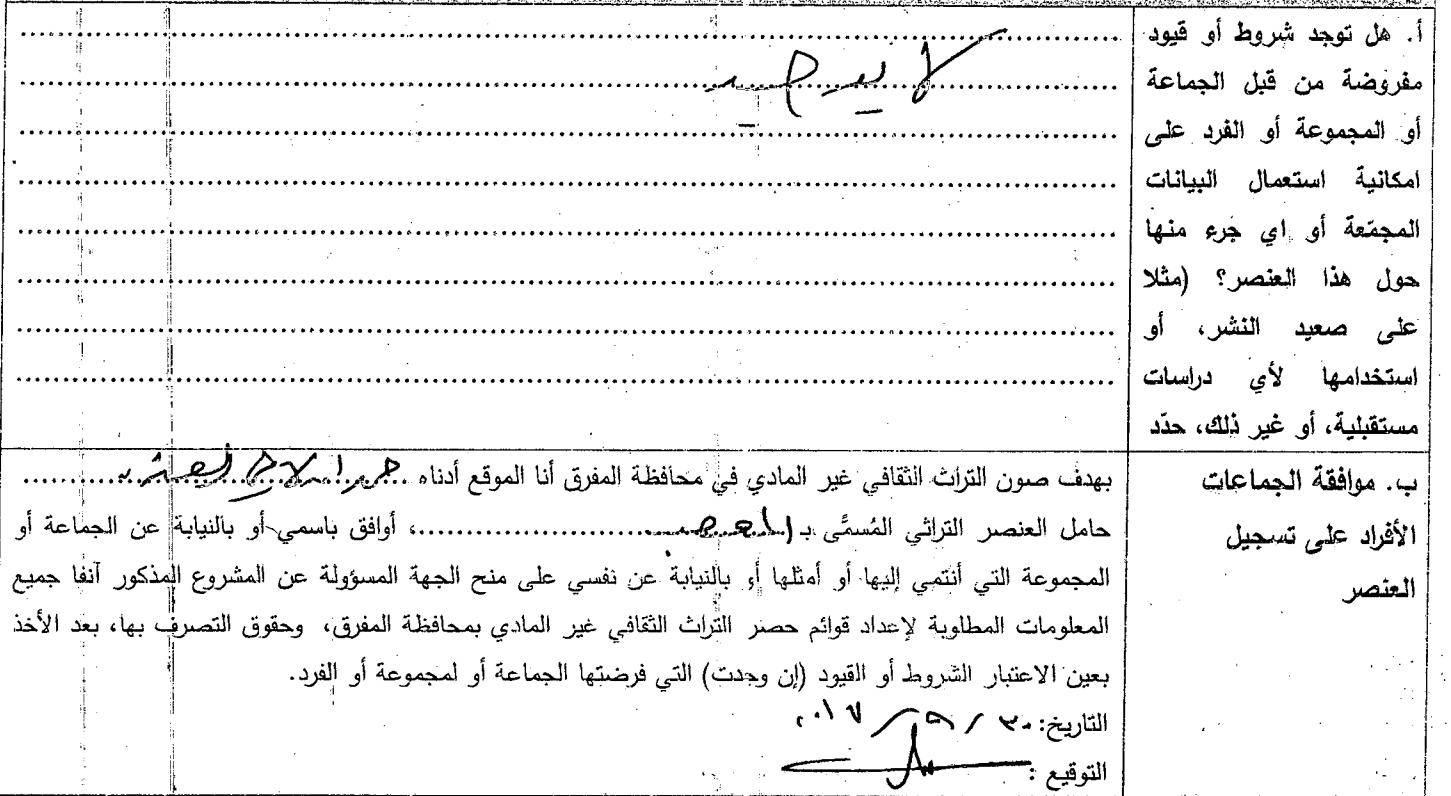 أ. هل توجد شروط أو قيود
مفروضة من قبل الجماعة
أو المجموعة أو الفرد على
امكانية استعمال البيانات
المجمّعة أو اي جرء منها
حول هذا العنصر؟ (مثلا
على صعيد النشر، أو
استخدامها لأي دراسات
مستقبلية، أو غير ذلك، حدّد
لا يوجد
ب. موافقة الجماعات
الأفراد على تسجيل
العنصر
بهدف صون التراث الثقافي غير المادي في محافظة المفرق أنا الموقع أدناه
حامل العنصر التراثي المُسمَّى بـ ................، أوافق باسمي أو بالنيابة عن الجماعة أو
المجموعة التي أنتمي إليها أو أمثلها أو بالنيابة عن نفسي على منح الجهة المسؤولة عن المشروع المذكور آنفا جميع
المعلومات المطلوبة لإعداد قوائم حصر التراث الثقافي غير المادي بمحافظة المفرق، وحقوق التصرف بها، بعد الأخذ
بعين الاعتبار الشروط أو القيود (إن وجدت) التي فرضتها الجماعة أو لمجموعة أو الفرد.
التاريخ: ٣٠ / ٩ / ٢٠١٧
التوقيع :